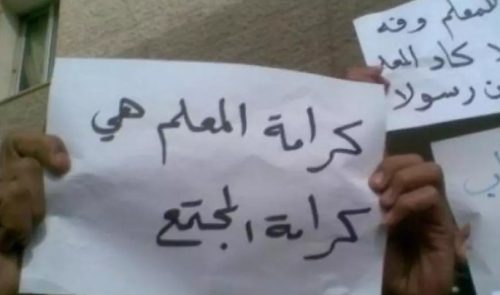 كرامة المعلم هي
كرامة المجتمع
للمعلم وفه
كاد المعد
ن رسولا